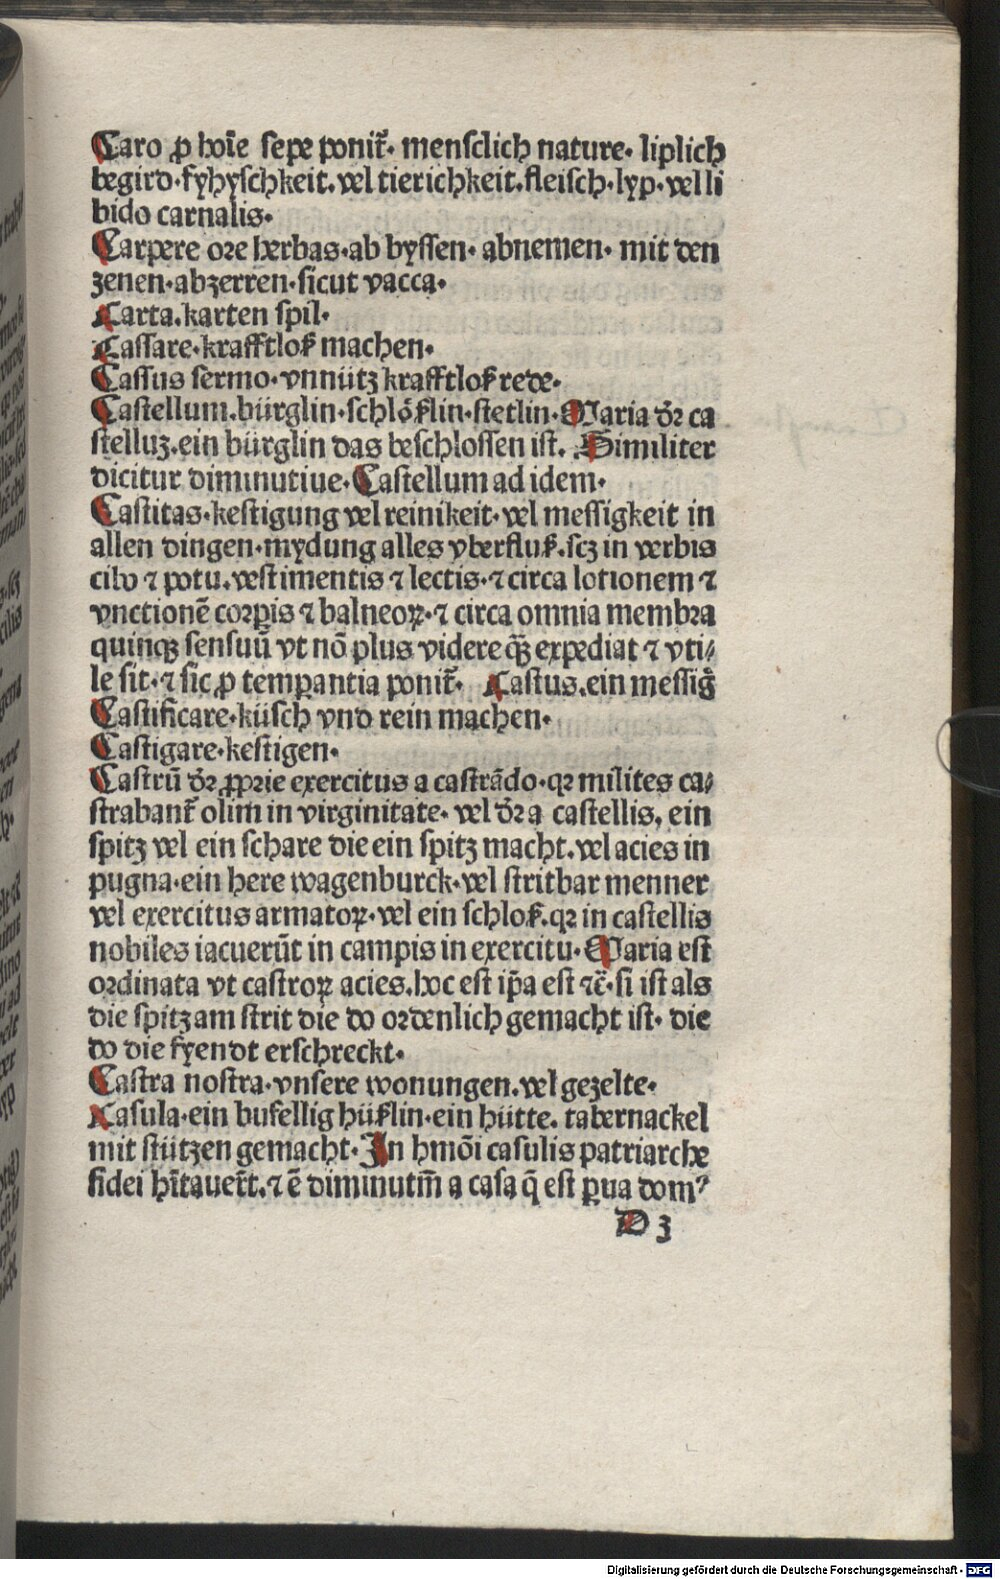 Caro ꝓ hoīe sepe ponit᷑. mensclich nature. liplich
begird. fyhyschkeit. vel tierichkeit. fleisch. lyp. vel li
bido carnalis.
Carpere ore herbas. ab byssen. abnemen. mit den
zenen. abzerren. sicut vacca.
Carta. karten spil.
Cassare. krafftloß machen.
Cassus sermo. vnnütz krafftloß rede.
Castellum. bürglin. schlößlin. stetlin. Maria dr̄ ca
stelluꝫ. ein bürglin das beschlossen ist. Similiter
dicitur diminutiue. Castellum ad idem.
Castitas. kestigung vel reinikeit. vel messigkeit in
allen dingen. mydung alles vberfluß. scꝫ in verbis
cibo ⁊ potu. vestimentis ⁊ lectis. ⁊ circa lotionem ⁊
vnctionē corꝑis ⁊ balneoꝝ. ⁊ circa omnia membra
quinqꝫ sensuū vt nō plus videre qꝫ̄ expediat ⁊ vti/
le sit. ⁊ sic ꝓ temꝑantia ponit᷑. Castus. ein messig̃
Castificare. küsch vnd rein machen.
Castigare. kestigen.
Castrū dr̄ ꝓprie exercitus a castrādo. qꝛ milites ca/
strabant᷑ olim in virginitate. vel dr̄ a castellis, ein
spitz vel ein schare die ein spitz macht. vel acies in
pugna. ein here wagenburck. vel stritbar menner
vel exercitus armatoꝝ. vel ein schloß. qꝛ in castellis
nobiles iacuerūt in campis in exercitu. Maria est
ordinata vt castroꝝ acies. hoc est ip̄a est ⁊c̄. si ist als
die spitz am strit die do ordenlich gemacht ist. die
do die fyendt erschreckt.
Castra nostra. vnsere wonungen. vel gezelte.
Casula. ein bufellig hüßlin. ein hütte. tabernackel
mit stützen gemacht. In hmōi casulis patriarche
fidei hītauer̄t. ⁊ ē diminutiū a casa q̄ est ꝑua domꝰ
D 3
Digitalisierung gefördert durch die Deutsche Forschungsgemeinschaft - DFG